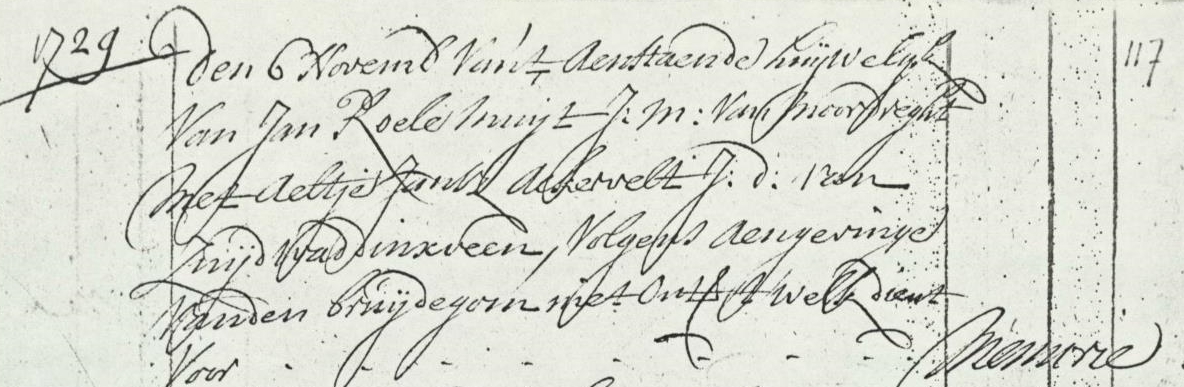 1729 den 6 Novemb Van't aenstaende huijwelijk 117
Van Jan Roelé Snuijt J: m: Van moordreght
Met aeltje Jans ackervelt J: d: van
Zuijd Waddinxveen, Volgens aengevinge
Vanden bruijdegom niet Ontf t welk dient
Voor - - - - - - - - Memorie